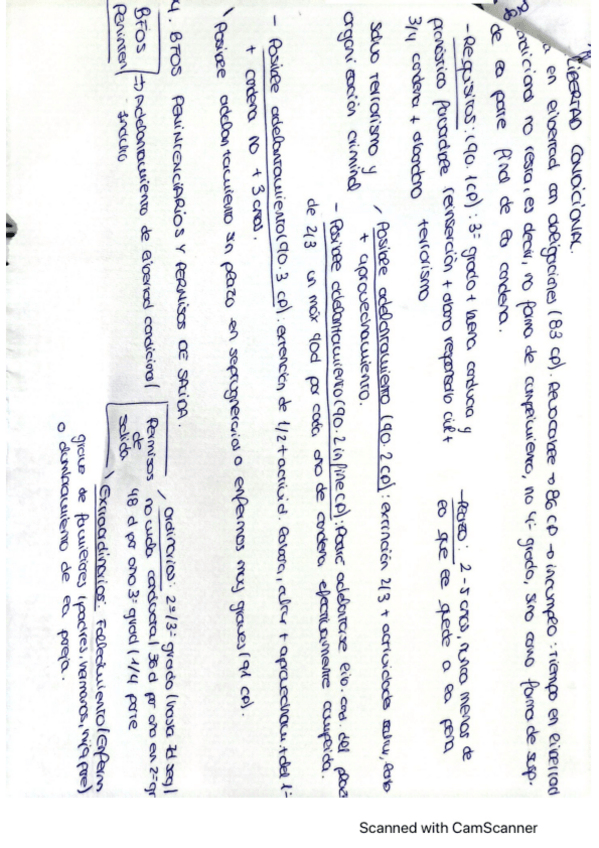 LIBERTAD CONDICIONAL.
en libertad con obligaciones (83 cp). Revocable → 86 CP → incumpla: tiempo en libertad
condicional no resta, es decir, no forma de cumplimiento, no 4º grado, sino como forma de susp.
de la parte final de la condena.
- Requisitos: (90.1 CP): 3º grado + buena conducta y
pronóstico favorable reinserción + abono responsab civil +
3/4 condena + abandono terrorismo
- Plazo: 2-5 años, nunca menos de
lo que le quede a la pena
salvo terrorismo y
organización criminal
/ Posible adelantamiento (90.2 CP): extinción 2/3 + actividade cultur, labo
+ aprovechamiento.
- Posible adelantamiento (90.2 in fine CP): Podrá adelantarse lib. cond. del plazo
de 2/3 un máx 90d por cada año de condena efectivamente cumplida.
- Posible adelantamiento (90.3 CP): extinción de 1/2 + activid. labora, cultur + aprovecham. + del 1º
+ condena no + 3 años.
\ Posible adelantamiento sin plazo en septuagenarios o enfermos muy graves (91 CP).
4. BFOS PENITENCIARIOS Y PERMISOS DE SALIDA.
BFIOS
Peniten
→ Adelantamiento de libertad condicional
indulto
Permisos
de
salida
/ Ordinarios: 2º/3º grado (hasta 7d seg)
no mala conducta/ 36 d por año en 2º gr
48 d por año 3º grad (1/4 parte
\ Extraordinarios: Fallecimiento/enferm
grave de familiares (padres, hermanos, hijos, pare)
o alumbramiento de la pareja.
Scanned with CamScanner